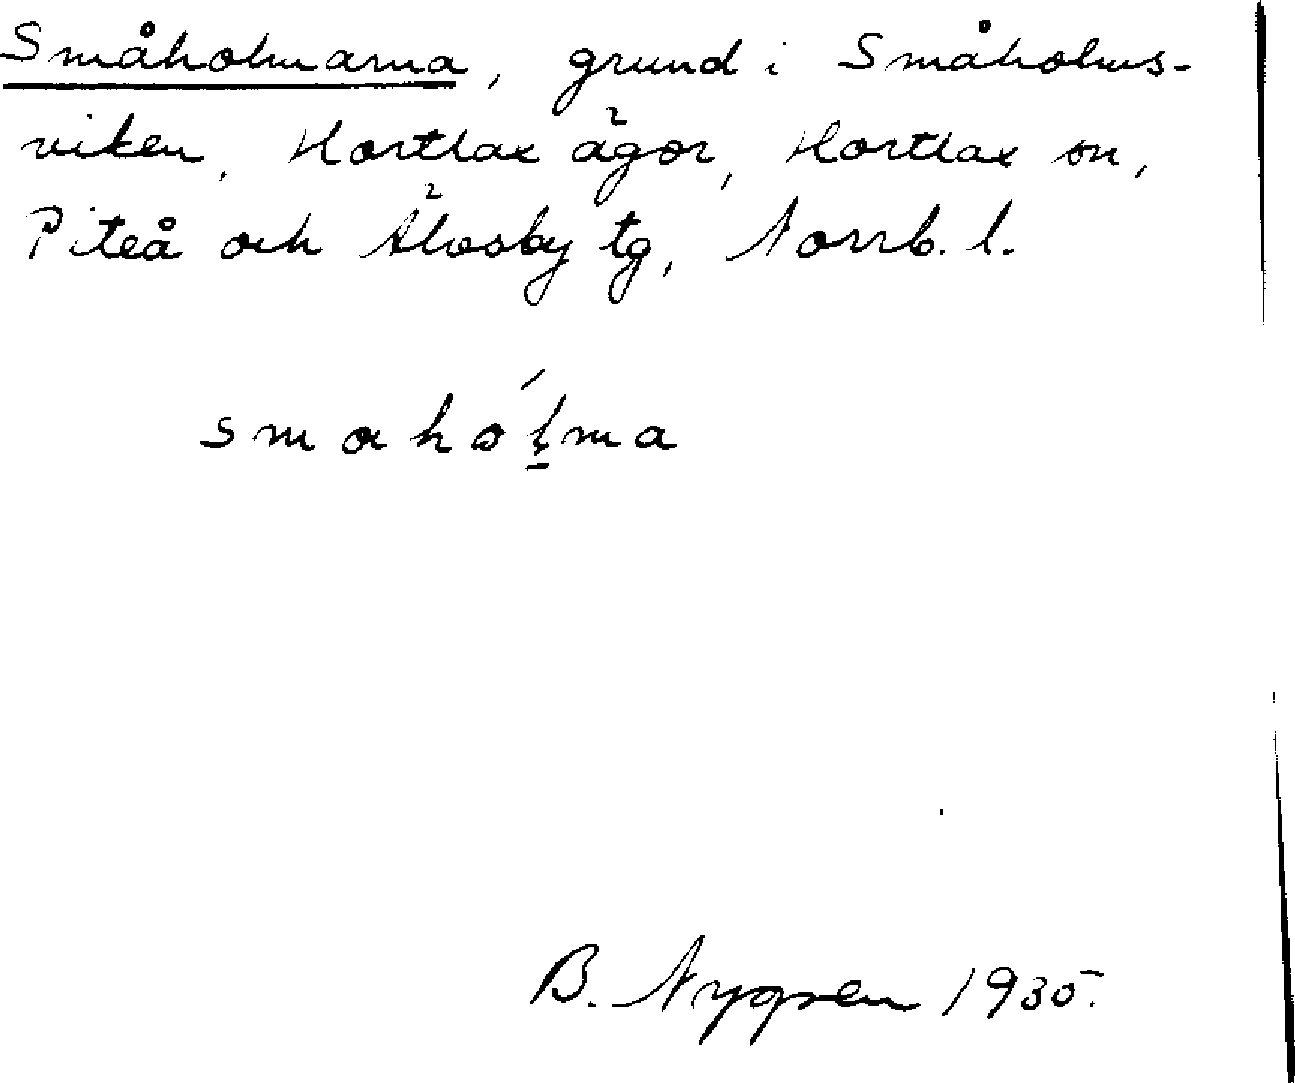 Småholmarna, grund i Småholms-
viken, Hortlax ägor, Hortlax sn,
Piteå och Älvsby tg, Norrb. l.
smaholma
B. Nygren 1935.